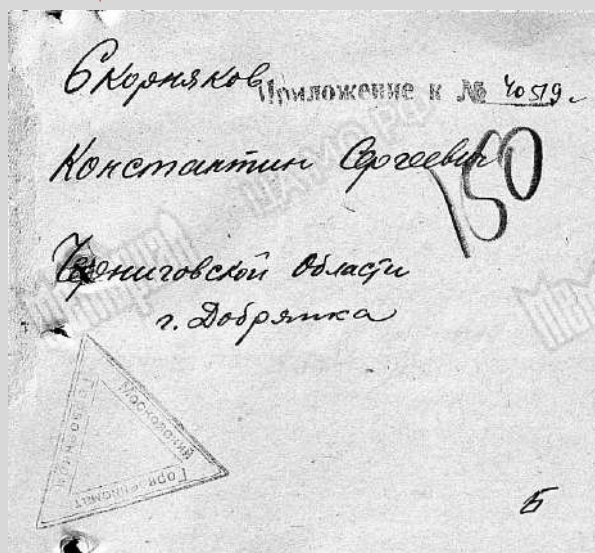 Скорняков
Приложение к № 40519.
Константин Сергеевич
150
Черниговской области
г. Добрянка
Московский
Горвоенкомат
Б